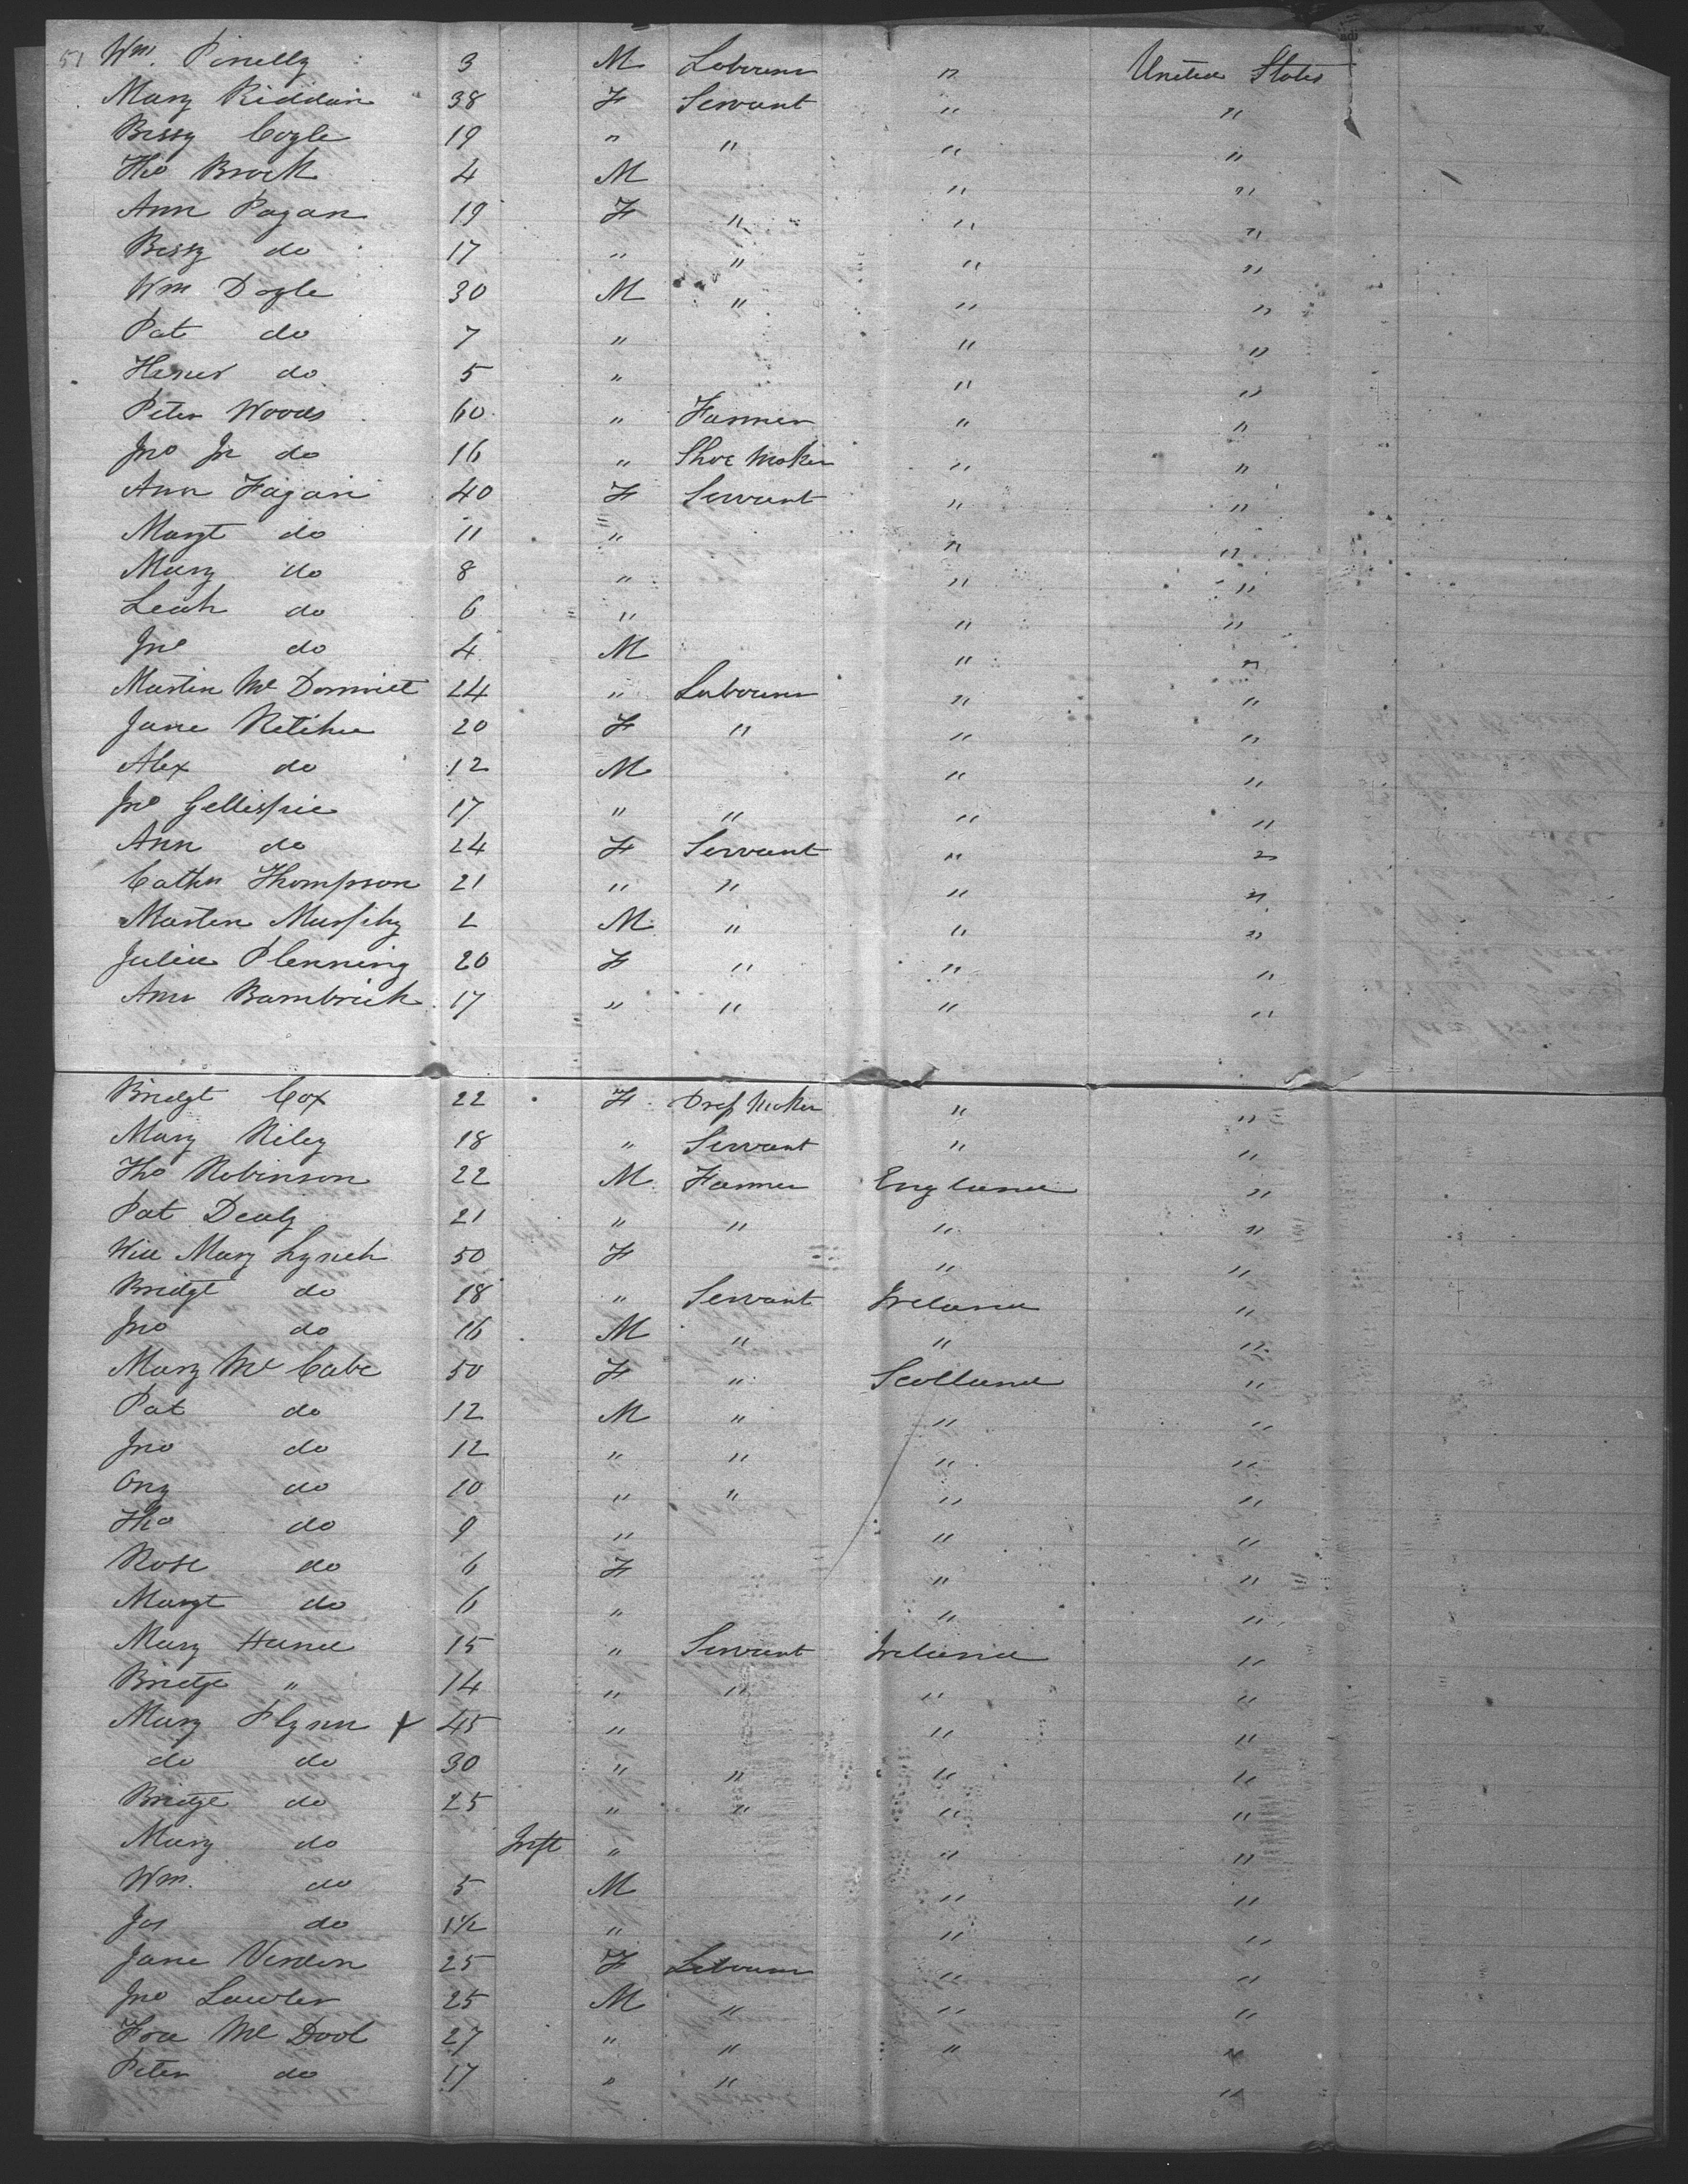 51 Wm. Pinelly 3 M Labourer " United States
Mary Riddin 38 F Servant " "
Bessy Cogle 19 " " " "
Tho Brock 4 M " "
Ann Pagan 19 F " " "
Bessy do 17 " " " "
Wm Dogle 30 M " " "
Pat do 7 " " "
do 5 " " "
Peter Woods 60 " Farmer " "
Jno Jr do 16 " Shoe Maker " "
Ann Fagan 40 F Servant " "
Margt do 11 " " "
Mary do 8 " " "
Leah do 6 " " "
Jno do 4 M " "
Martin Mc Dormitt 24 " Labourer " "
Jane Ritihie 20 F " " "
Alex do 12 M " "
Jno Gellispie 17 " " " "
Ann do 24 F Servant " "
Cathn Thompson 21 " " " "
Marten Murphy 2 M " " "
Julia Plenning 20 F " " "
Ann Bambrick 17 " " " "
Bridgt Cox 22 F Dress Maker " "
Mary Riley 18 " Servant " "
Tho Robinson 22 M Farmer England "
Pat Dealy 21 " " " "
Mary Lynch 50 F " "
Bridgt do 18 " Servant Ireland "
Jno do 16 M " " "
Mary Mc Cabe 50 F " Scotland "
Pat do 12 M " " "
Jno do 12 " " " "
Ony do 10 " " " "
Tho do 9 " " "
Rose do 6 F " "
Margt do 6 " " "
Mary 15 " Servant Ireland "
Bridge " 14 " " " "
Mary Plynn x 45 " " "
do do 30 " " " "
Bridge do 25 " " " "
Mary do Inft " " "
Wm. do 5 M " "
Jas do 1½ " " "
Jane Verden 25 F Labourer " "
Jno Lawler 25 M " " "
Fra Mc Dool 27 " " " "
Peter do 17 " " "